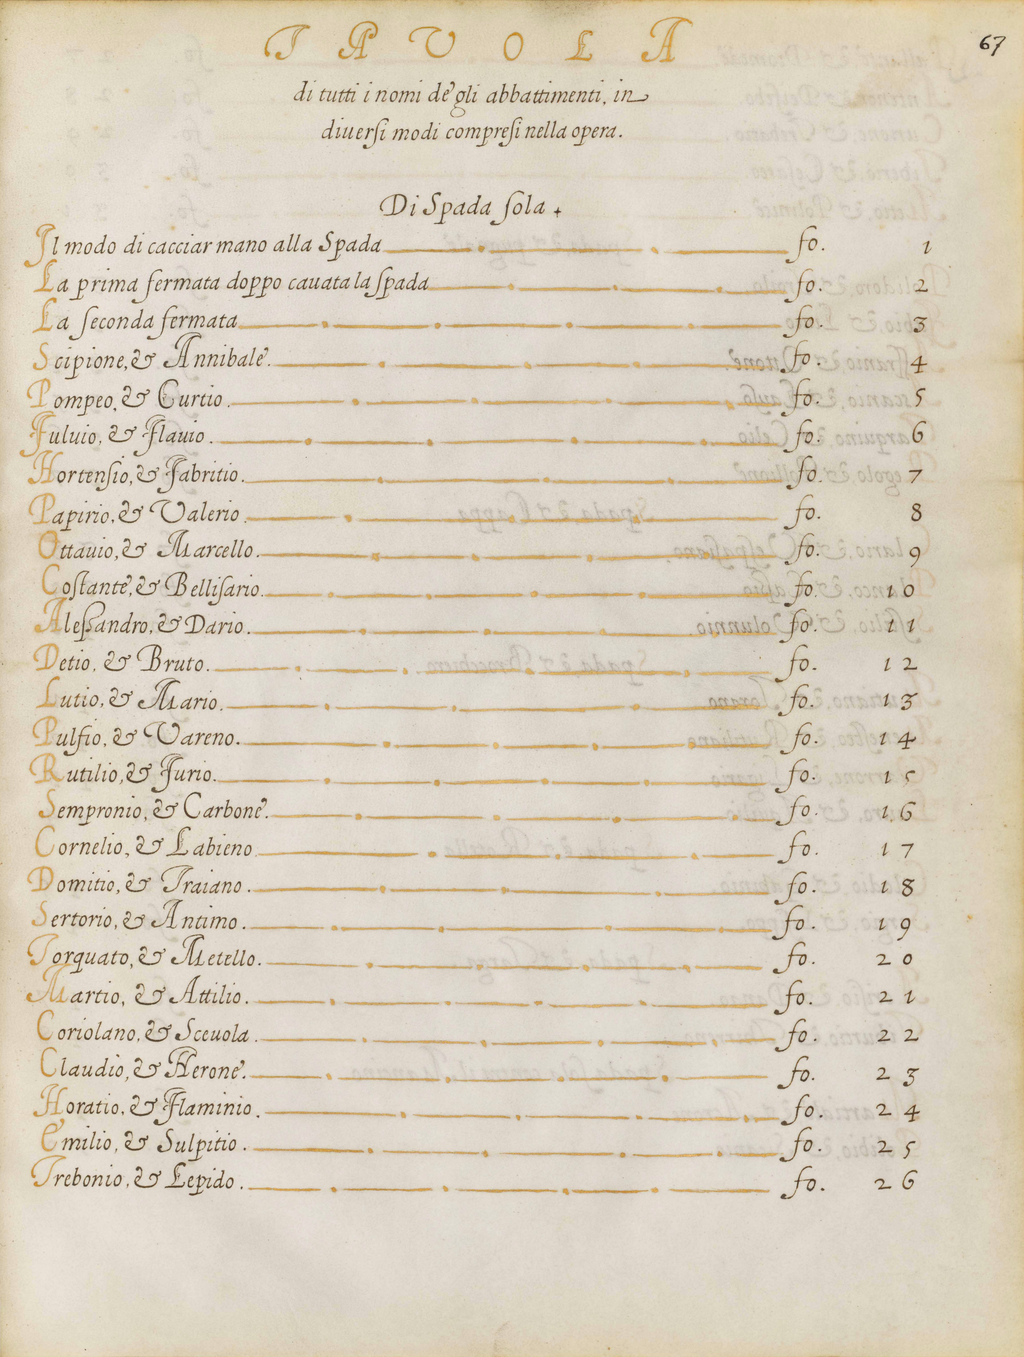 TAVOLA
67
di tutti i nomi de gli abbattimenti, in
diuersi modi compresi nella opera.
Di Spada sola
Il modo di cacciar mano alla Spada fo. 1
La prima fermata doppo cauata la spada fo. 2
La seconda fermata fo. 3
Scipione, & Annibale. fo. 4
Pompeo, & Curtio. fo. 5
Fuluio, & Flauio. fo. 6
Hortensio, & Fabritio. fo. 7
Papirio, & Valerio. fo. 8
Ottauio, & Marcello. fo. 9
Costante, & Bellisario. fo. 10
Alessandro, & Dario. fo. 11
Detio, & Bruto. fo. 12
Lutio, & Mario. fo. 13
Pulfio, & Vareno. fo. 14
Rutilio, & Furio. fo. 15
Sempronio, & Carbone. fo. 16
Cornelio, & Labieno fo. 17
Domitio, & Traiano. fo. 18
Sertorio, & Antimo. fo. 19
Torquato, & Metello. fo. 20
Martio, & Attilio. fo. 21
Coriolano, & Sceuola. fo. 22
Claudio, & Nerone. fo. 23
Horatio, & Flaminio. fo. 24
Emilio, & Sulpitio. fo. 25
Trebonio, & Lepido. fo. 26